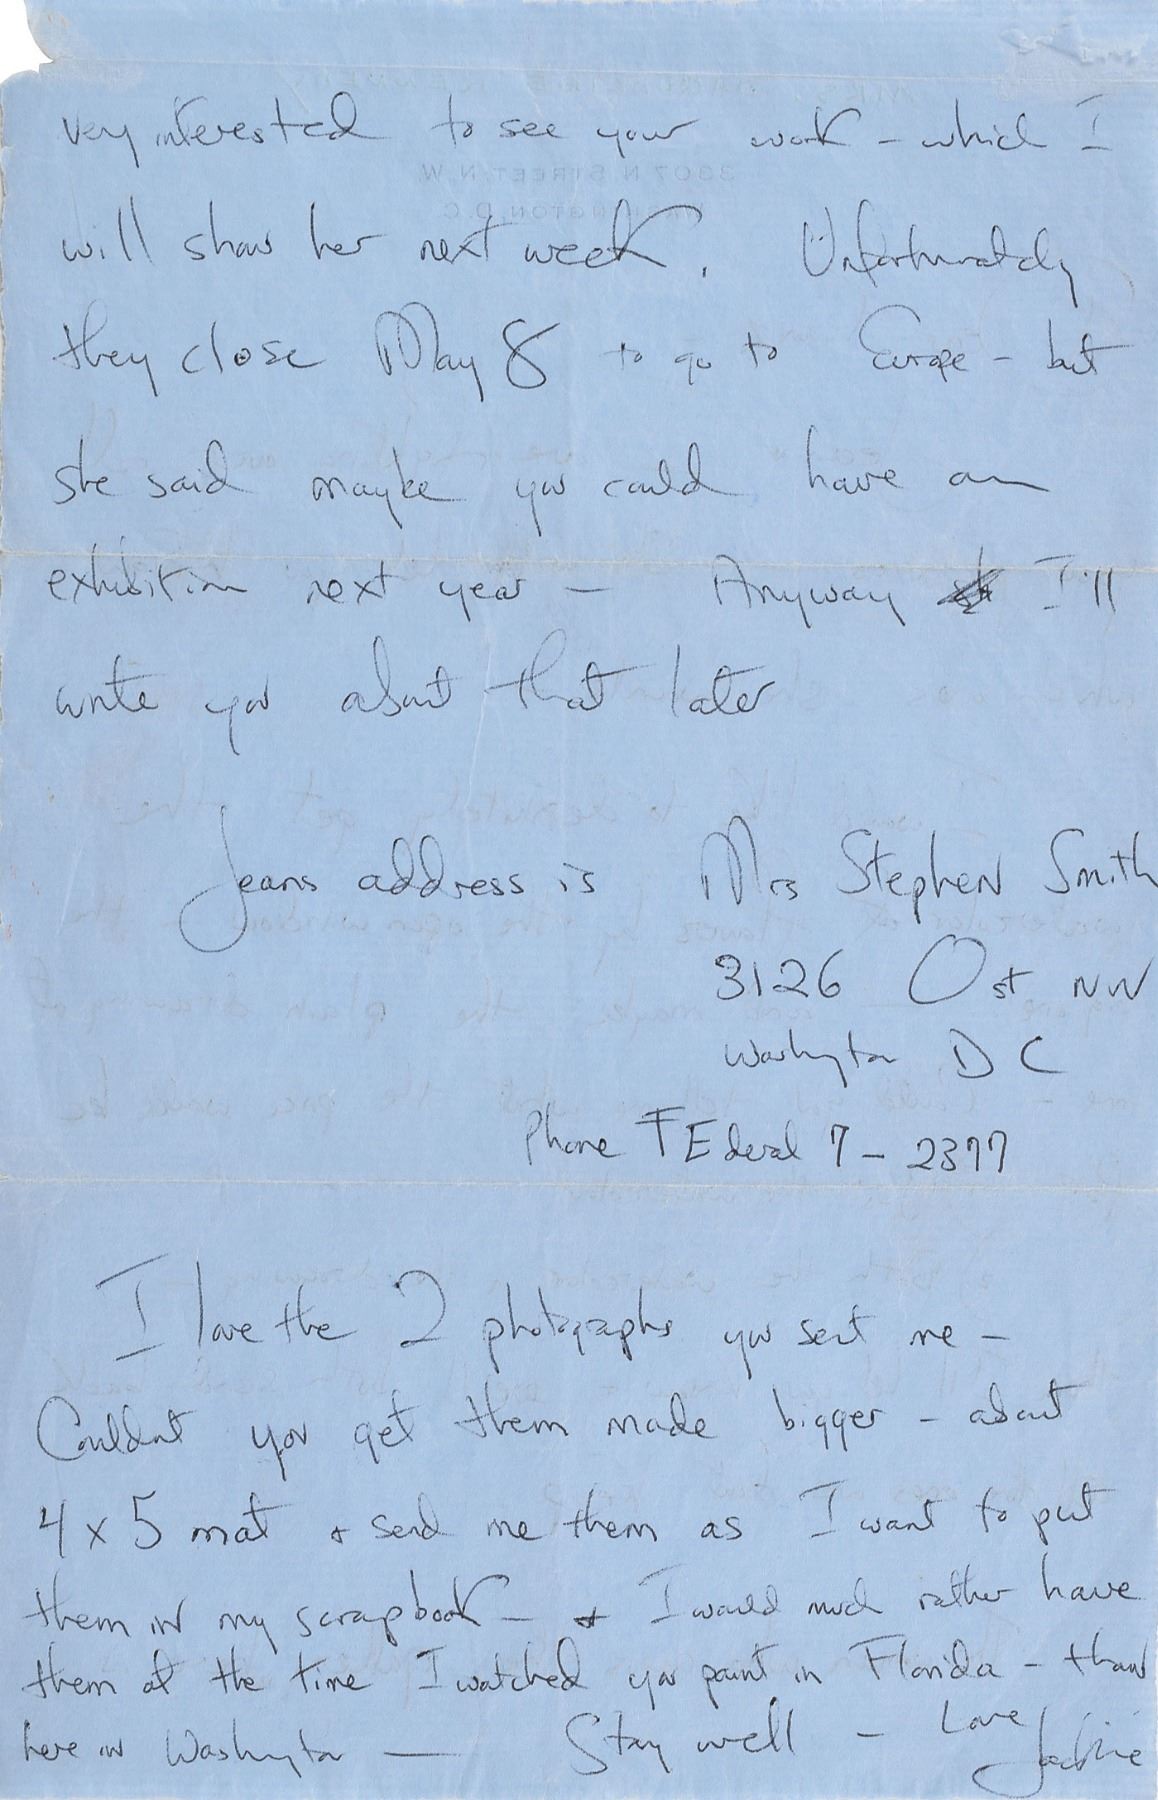 very interested to see your work – which I
will show her next week. Unfortunately
they close May 8 to go to Europe – but
she said maybe you could have an
exhibition next year – Anyway I'll
write you about that later
Jeans address is Mrs Stephen Smith
3126 O st NW
Washington D C
Phone FEderal 7 – 2377
I love the 2 photographs you sent me –
Couldnt you get them made bigger – about
4 x 5 mat & send me them as I want to put
them in my scrapbook – & I would much rather have
them of the time I watched you paint in Florida – than
here in Washington — Stay well – Love
Jackie
3307 N STREET, N.W.
WASHINGTON, D.C.